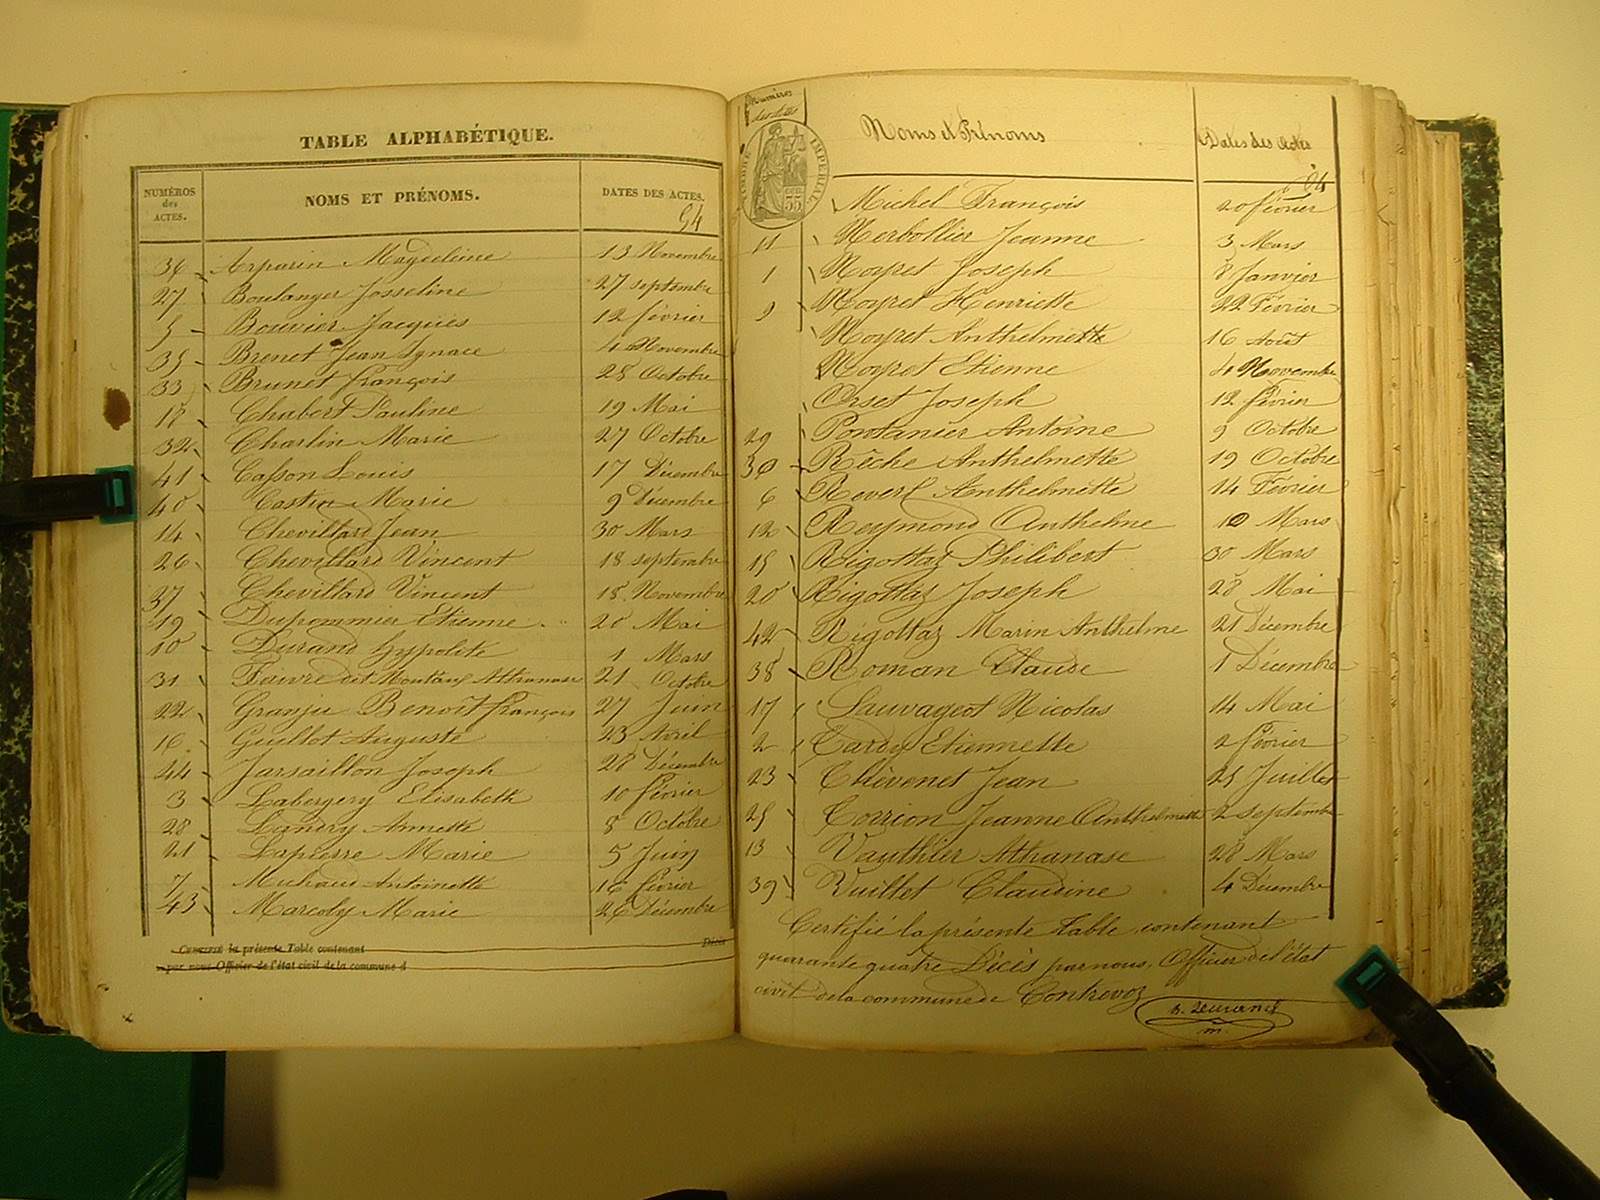 TABLE ALPHABÉTIQUE.
NUMÉROS des ACTES. NOMS ET PRÉNOMS. DATES DES ACTES.
54
36 Arparin Magdeleine 13 Novembre
27 Boulanger Josseline 27 septembre
5 Bouvier Jacques 12 février
35 Brenet Jean Ignace 4 Novembre
33 Brunet françois 28 Octobre
18 Chabert Pauline 19 Mai
32 Charlin Marie 27 Octobre
41 Casson Louis 17 Décembre
40 Castin Marie 9 Décembre
14 Chevillard Jean 30 Mars
26 Chevillard Vincent 18 septembre
37 Chevillard Vincent 18 Novembre
19 Dupommier Etienne 20 Mai
10 Durand hypolite 1 Mars
31 Faivre dit Montany Athanase 21 Octobre
22 Granju Benoit françois 27 Juin
16 Guillot Auguste 23 Avril
44 Jarsaillon Joseph 28 Décembre
3 Labergery Elisabeth 10 février
28 Landry Annette 8 Octobre
21 Lapierre Marie 5 Juin
7 Michaud Antoinette 16 février
43 Marcoby Marie 26 Décembre
CERTIFIÉ la présente Table contenant Décès
par nous Officier de l'état civil de la commune d
Numéros des actes Noms et Prénoms Dates des Actes
TIMBRE IMPÉRIAL
Michel François 20 février
11 Merbollier Jeanne 3 Mars
1 Moyret Joseph 8 Janvier
9 Moyret Henriette 22 Février
Moyret Anthelmette 16 Août
Moyret Etienne 4 Novembre
Orset Joseph 12 février
29 Pontanier Antoine 9 Octobre
30 Rêche Anthelmette 19 Octobre
6 Reverl Anthelmette 14 Février
12 Reymond Anthelme 10 Mars
15 Rigottaz Philibert 30 Mars
20 Rigottaz Joseph 28 Mai
42 Rigottaz Marin Anthelme 21 Décembre
38 Roman Claude 1 Décembre
17 Sauvageot Nicolas 14 Mai
2 Tardy Etiennette 2 février
23 Thévenet Jean 25 Juillet
25 Torrion Jeanne Anthelmette 2 septembre
13 Vauthier Athanase 28 Mars
39 Vuillet Claudine 4 Décembre
Certifié la présente Table, contenant
quarante quatre Décès par nous, Officier de l'état
civil de la commune de Contrevoz